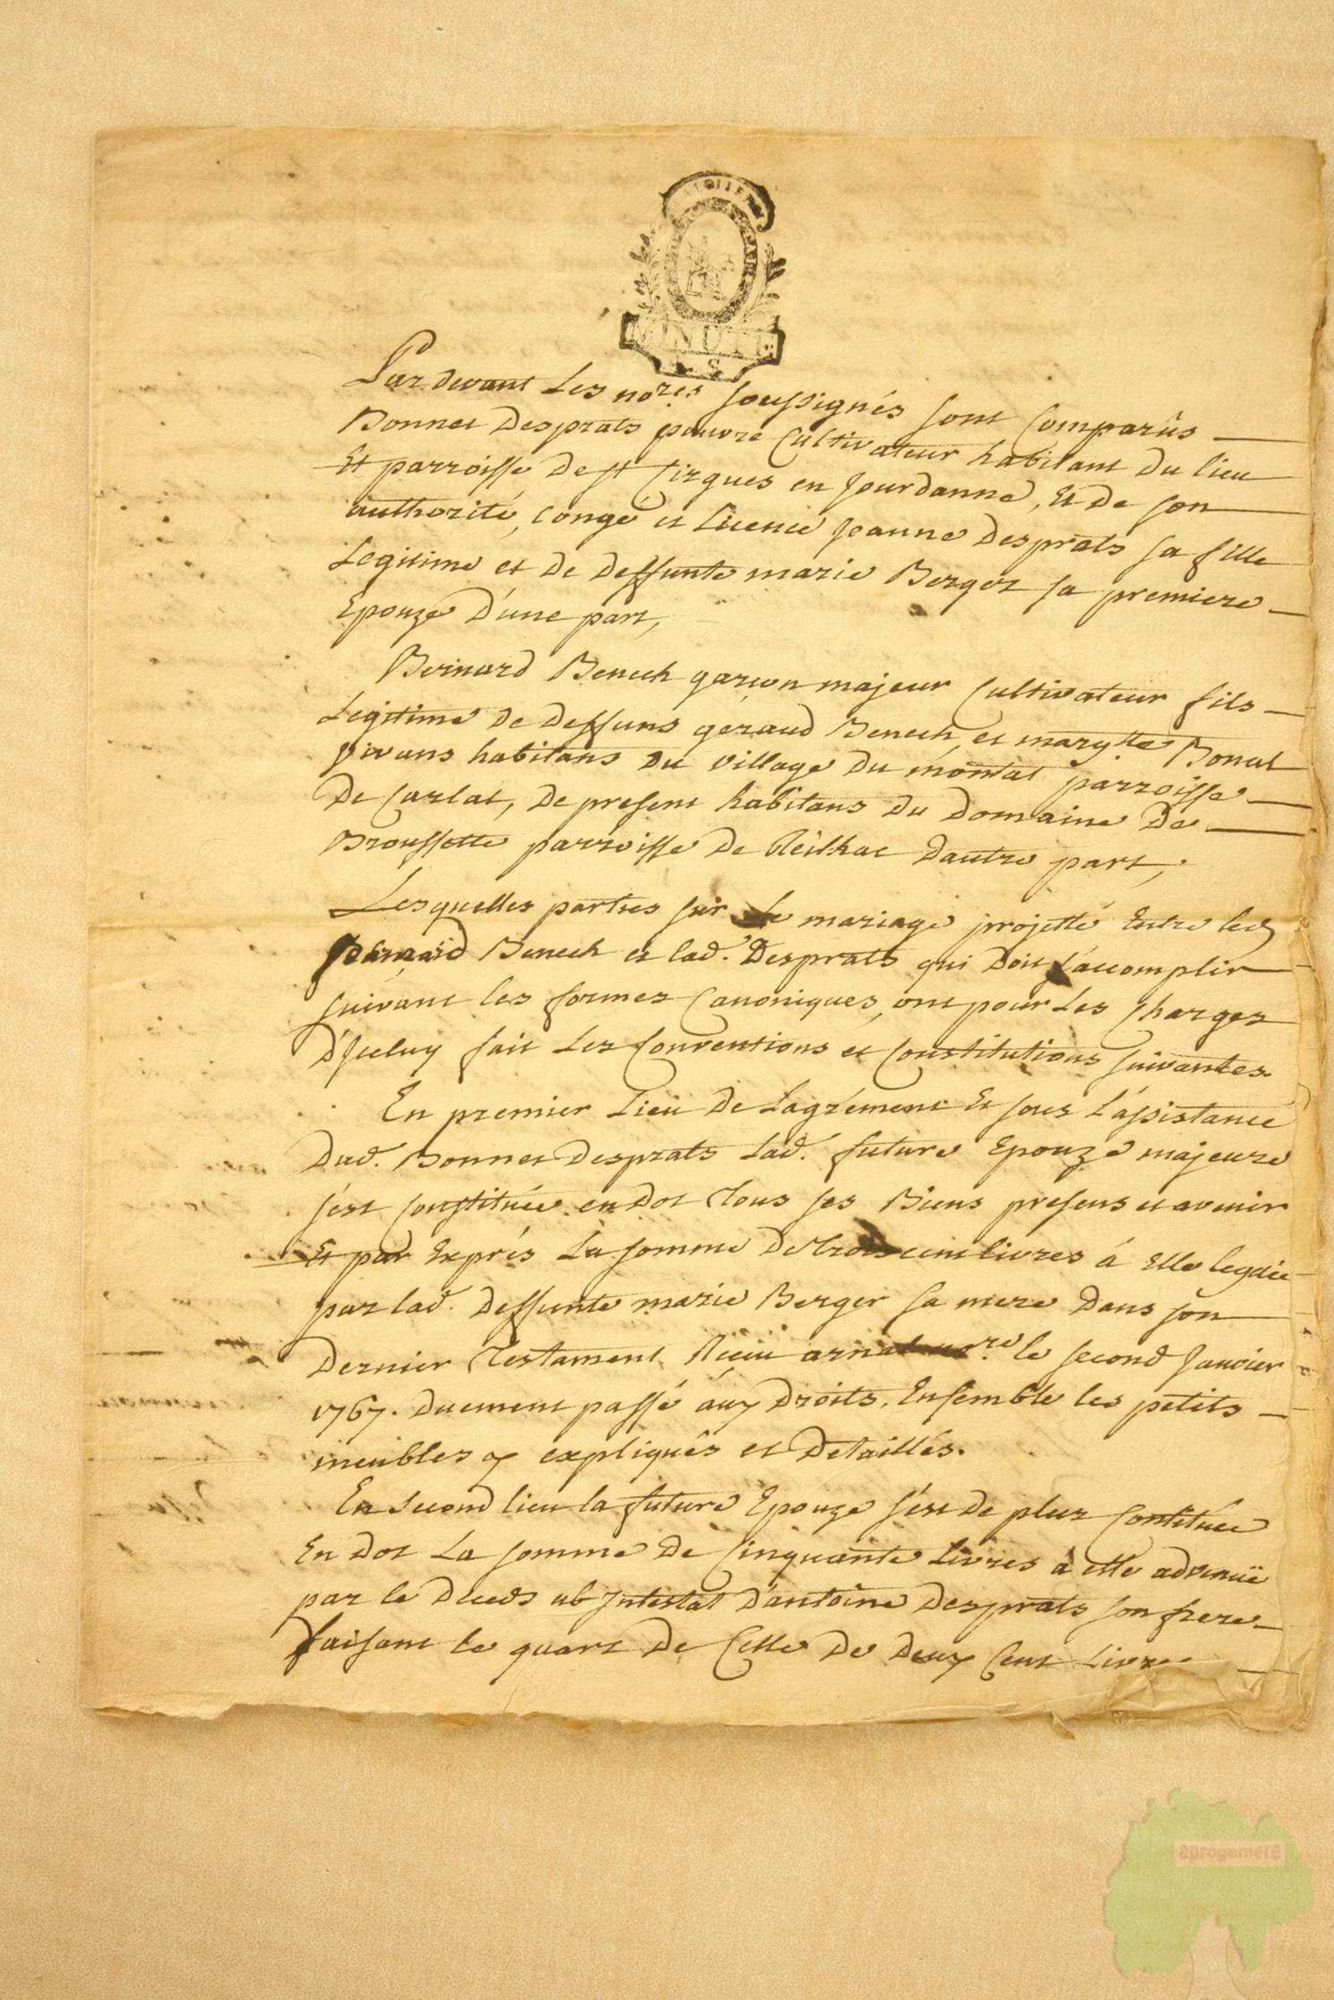 MINUTE
2. S.
Par devant Les no.res soussignés sont Comparûs
Bonnet Desprats pauvre Cultivateur habitant du lieu
Et parroisse De st Cirgues en Jourdanne, Et De son
authorité, Congé et Licence Jeanne Desprats sa fille
Legitime et De Deffunte marie Berger sa premiere
Epouze D'une part,
Bernard Benech garçon majeur Cultivateur fils
Legitime De Deffuns géraud Benech, et marg.tte Bonal
vivans habitans Du village Du montal parroisse
De Carlat, De present habitans Du Domaine De
Broussette parroisse De Reilhac Dautre part,
Lesquelles parties sur Le mariage projetté Entre led
Bernard Benech et lad. Desprats qui Doit s'accomplir
suivant les formes Canoniques, ont pour Les Charges
D'Jceluy fait Les Conventions et Constitutions suivantes.
En premier Lieu De Lagrément Et sous L'assistance
Dud. Bonnet Desprats Lad. future Epouze majeure
s'est Constituée en Dot Tous ses Biens presens et avenir
Et par Exprés La somme De trois cent livres á Elle leguée
par lad. Deffunte marie Berger sa mere Dans son
Dernier Testament Reçu arnal no.re le second Janvier
1767. Duement passé áux Droits, Ensemble les petits
meubles y expliqués et Detaillés.
En Second lieu la future Epouze s'est De plus Constituée
En Dot La somme De Cinquante Livres à elle advenuë
par le Deceds ab Jntestat D'antoine Desprats son frere
faisant le quart De Celle De Deux Cent Livres
aprogemere